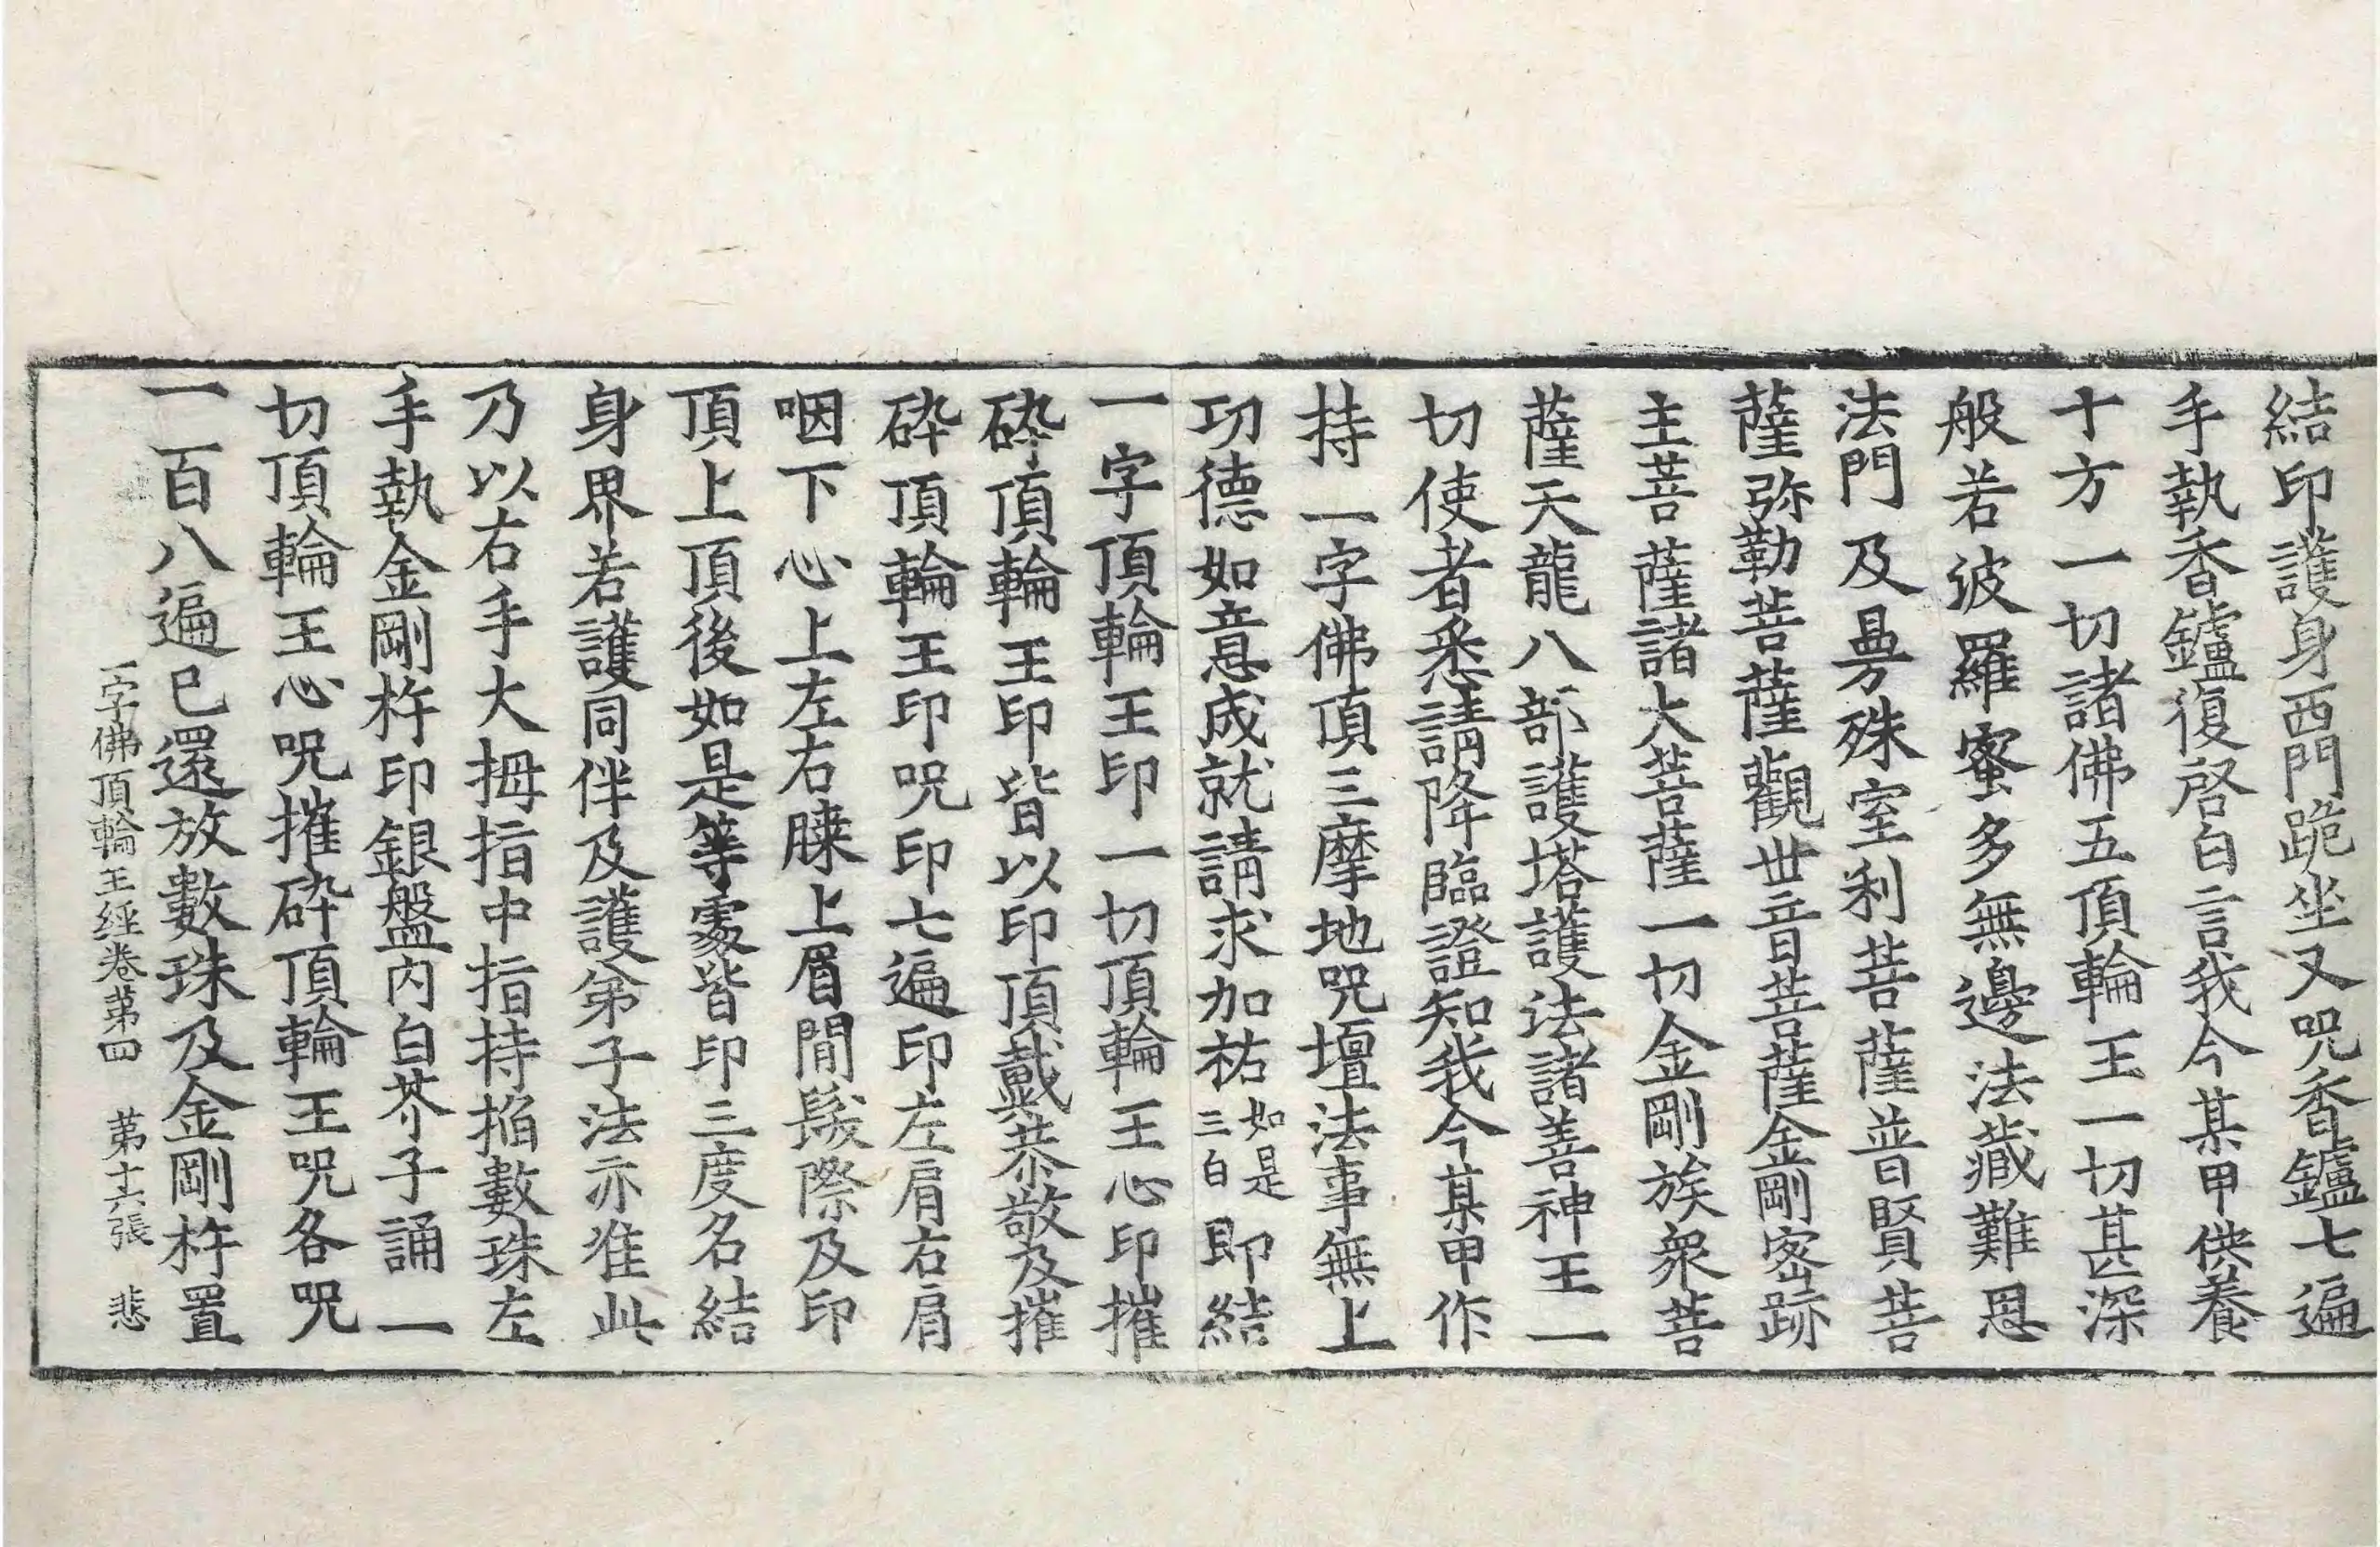 結印護身西門跪坐又呪香鑪七遍
手執香鑪復啓白言我今某甲供養
十方一切諸佛五頂輪王一切甚深
般若波羅蜜多無邊法藏難思
法門及曼殊室利菩薩普賢菩
薩弥勒菩薩觀世音菩薩金剛密跡
主菩薩諸大菩薩一切金剛族衆菩
薩天龍八部護塔護法諸善神王一
切使者悉請降臨證知我今某甲作
持一字佛頂三摩地呪壇法事無上
功德如意成就請求加祐如是三白即結
一字頂輪王印一切頂輪王心印摧
碎頂輪王印皆以印頂戴恭敬及摧
碎頂輪王印呪印七遍印左肩右肩
咽下心上左右䐗上眉間髮際及印
頂上頂後如是等處皆印三度名結
身界若護同伴及護弟子法亦准此
乃以右手大拇指中指持掐數珠左
手執金剛杵印銀盤內白芥子誦一
切頂輪王心呪摧碎頂輪王呪各呪
一百八遍已還放數珠及金剛杵置
一字佛頂輪王經卷第四 第十六張 悲